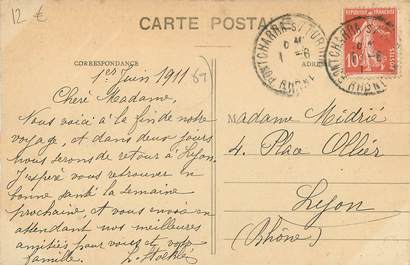 12 €
CARTE POSTALE
CORRESPONDANCE
1er Juin 1911
69
Chère Madame,
Nous voici à la fin de notre
voyage, et dans deux jours
nous serons de retour à Lyon.
J'espère vous retrouver en
bonne santé la semaine
prochaine, et vous envoie en
attendant nos meilleures
amitiés pour vous et votre
famille.
PONTCHARRA-S/TURDINE
RHONE
REPUBLIQUE FRANÇAISE
10c
POSTES
Madame Midrié
4, Place Ollier
Lyon
(Rhône)